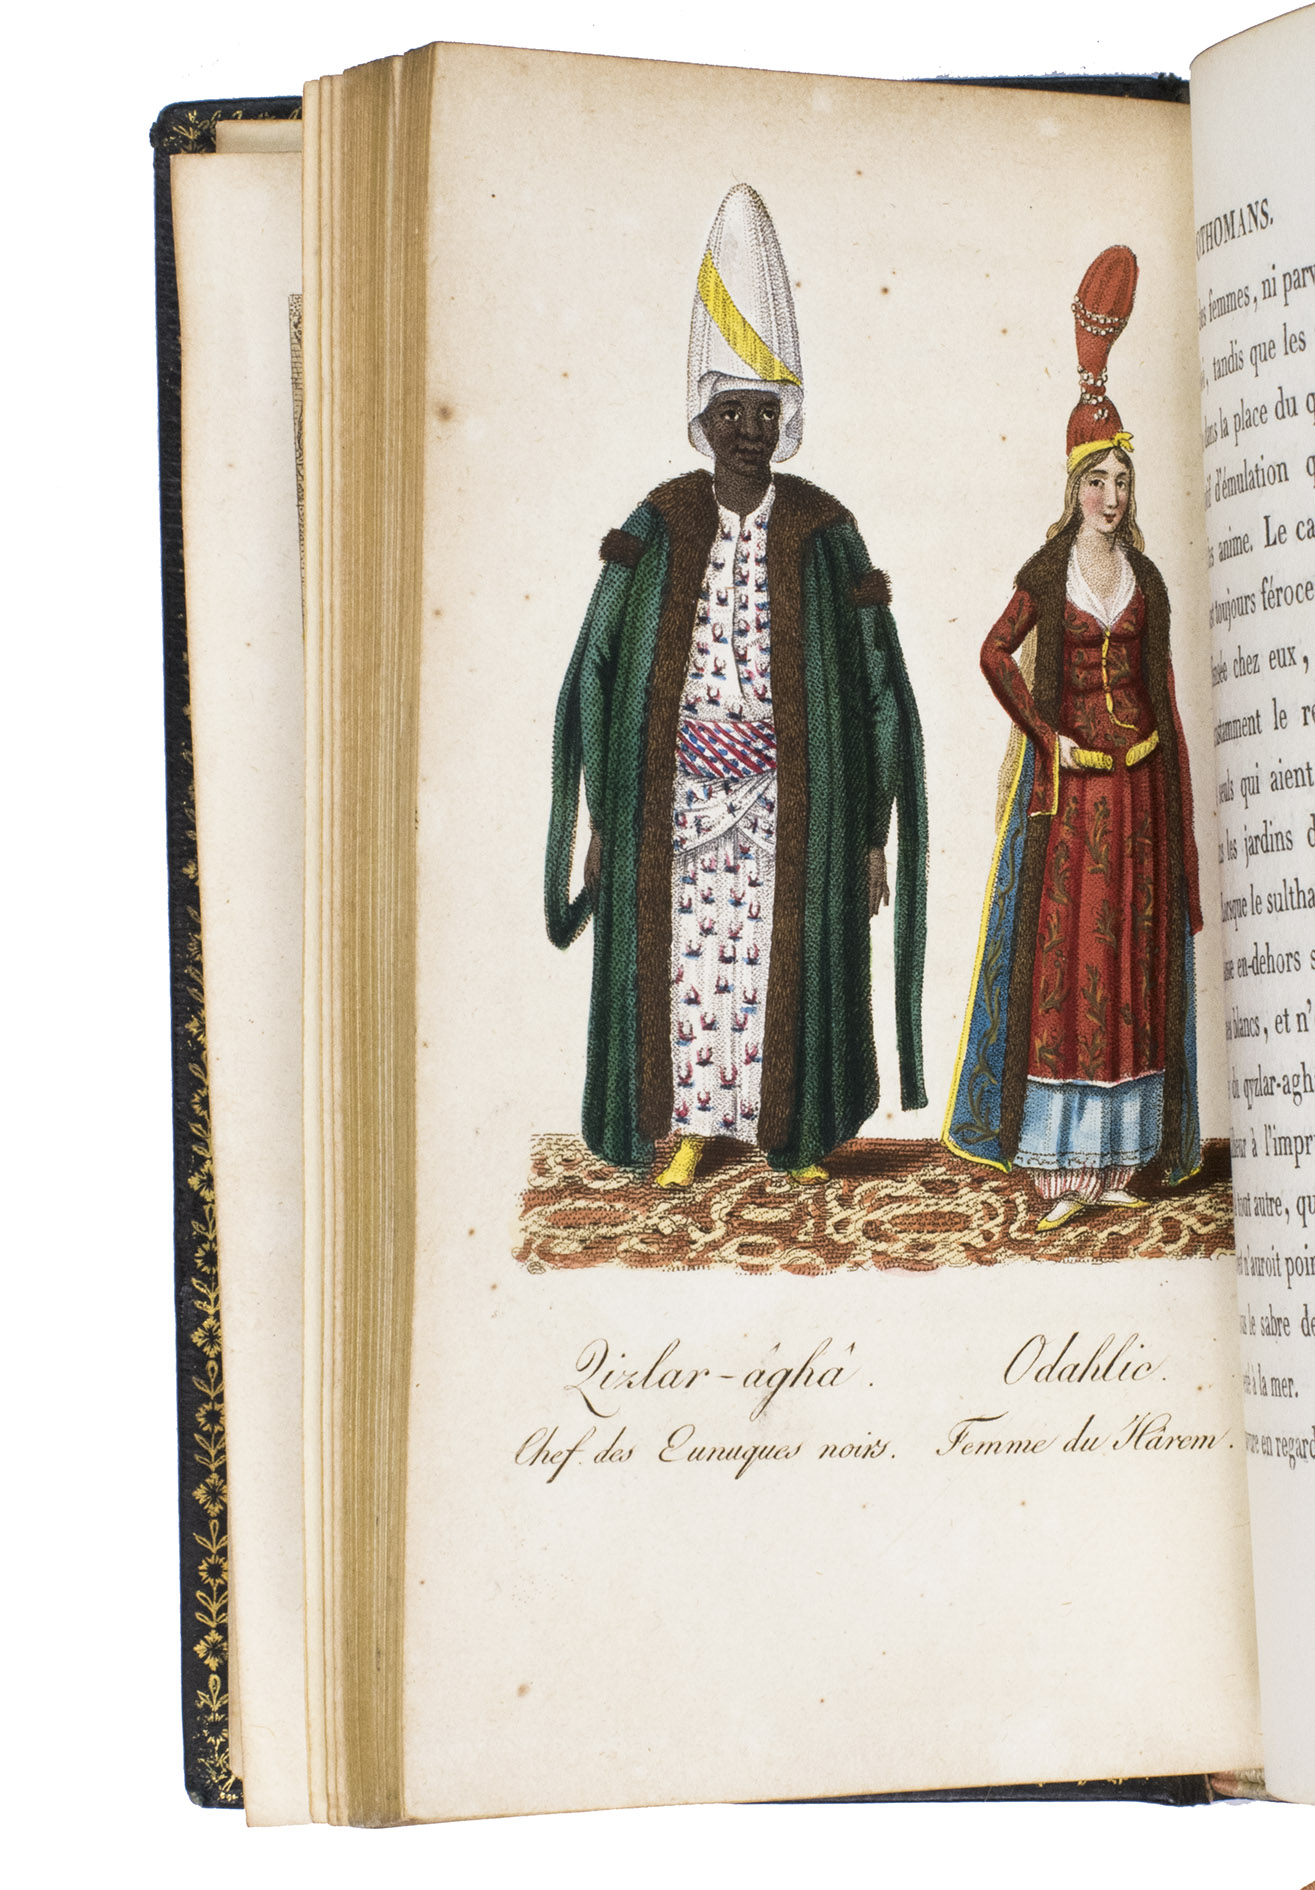 Qizlar-âghâ. Odahlic.
Chef des Eunuques noirs. Femme du Hârem.
OTHOMANS.
femmes, ni parv
, tandis que les
dans la place du q
d'émulation q
anime. Le ca
toujours féroce
chez eux,
le re
qui aient
les jardins d
Lorsque le sultha
en-dehors s
blancs, et n'
du qyzlar-agh
à l'impr
tout autre, qu
n'auroit poin
le sabre de
à la mer.
en regard